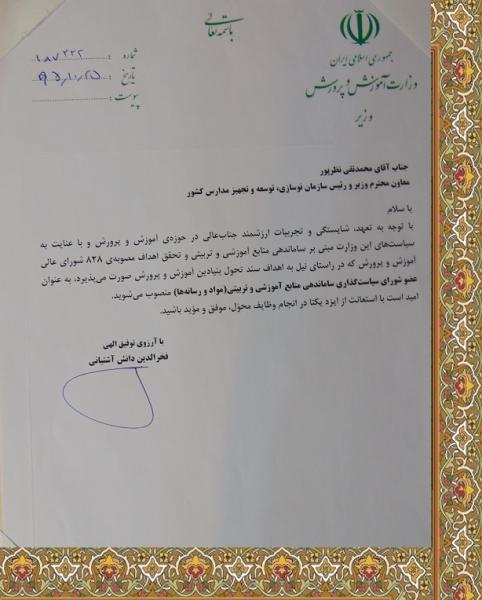 باسمه تعالی
جمهوری اسلامی ایران
وزارت آموزش و پرورش
وزیر
شماره : ۱۸۷۳۳۲
تاریخ :
پیوست :
جناب آقای محمدتقی نظرپور
معاون محترم وزیر و رئیس سازمان نوسازی، توسعه و تجهیز مدارس کشور
با سلام
با توجه به تعهد، شایستگی و تجربیات ارزشمند جناب‌عالی در حوزه‌ی آموزش و پرورش و با عنایت به
سیاست‌های این وزارت مبنی بر ساماندهی منابع آموزشی و تربیتی و تحقق اهداف مصوبه‌ی ۸۲۸ شورای عالی
آموزش و پرورش که در راستای نیل به اهداف سند تحول بنیادین آموزش و پرورش صورت می‌پذیرد، به عنوان
عضو شورای سیاست‌گذاری ساماندهی منابع آموزشی و تربیتی(مواد و رسانه‌ها) منصوب می‌شوید.
امید است با استعانت از ایزد یکتا در انجام وظایف محوّل، موفق و مؤید باشید.
با آرزوی توفیق الهی
فخرالدین دانش آشتیانی